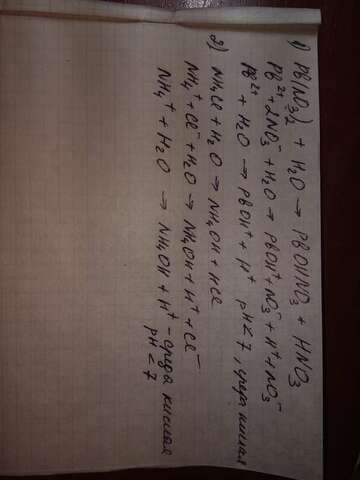 1) Pb(NO3)2 + H2O → PbOHNO3 + HNO3
Pb²⁺ + 2NO3⁻ + H2O → PbOH⁺ + NO3⁻ + H⁺ + NO3⁻
Pb²⁺ + H2O → PbOH⁺ + H⁺ pH<7, среда кислая
2) NH4Cl + H2O → NH4OH + HCl
NH4⁺ + Cl⁻ + H2O → NH4OH + H⁺ + Cl⁻
NH4⁺ + H2O → NH4OH + H⁺ - среда кислая
pH<7